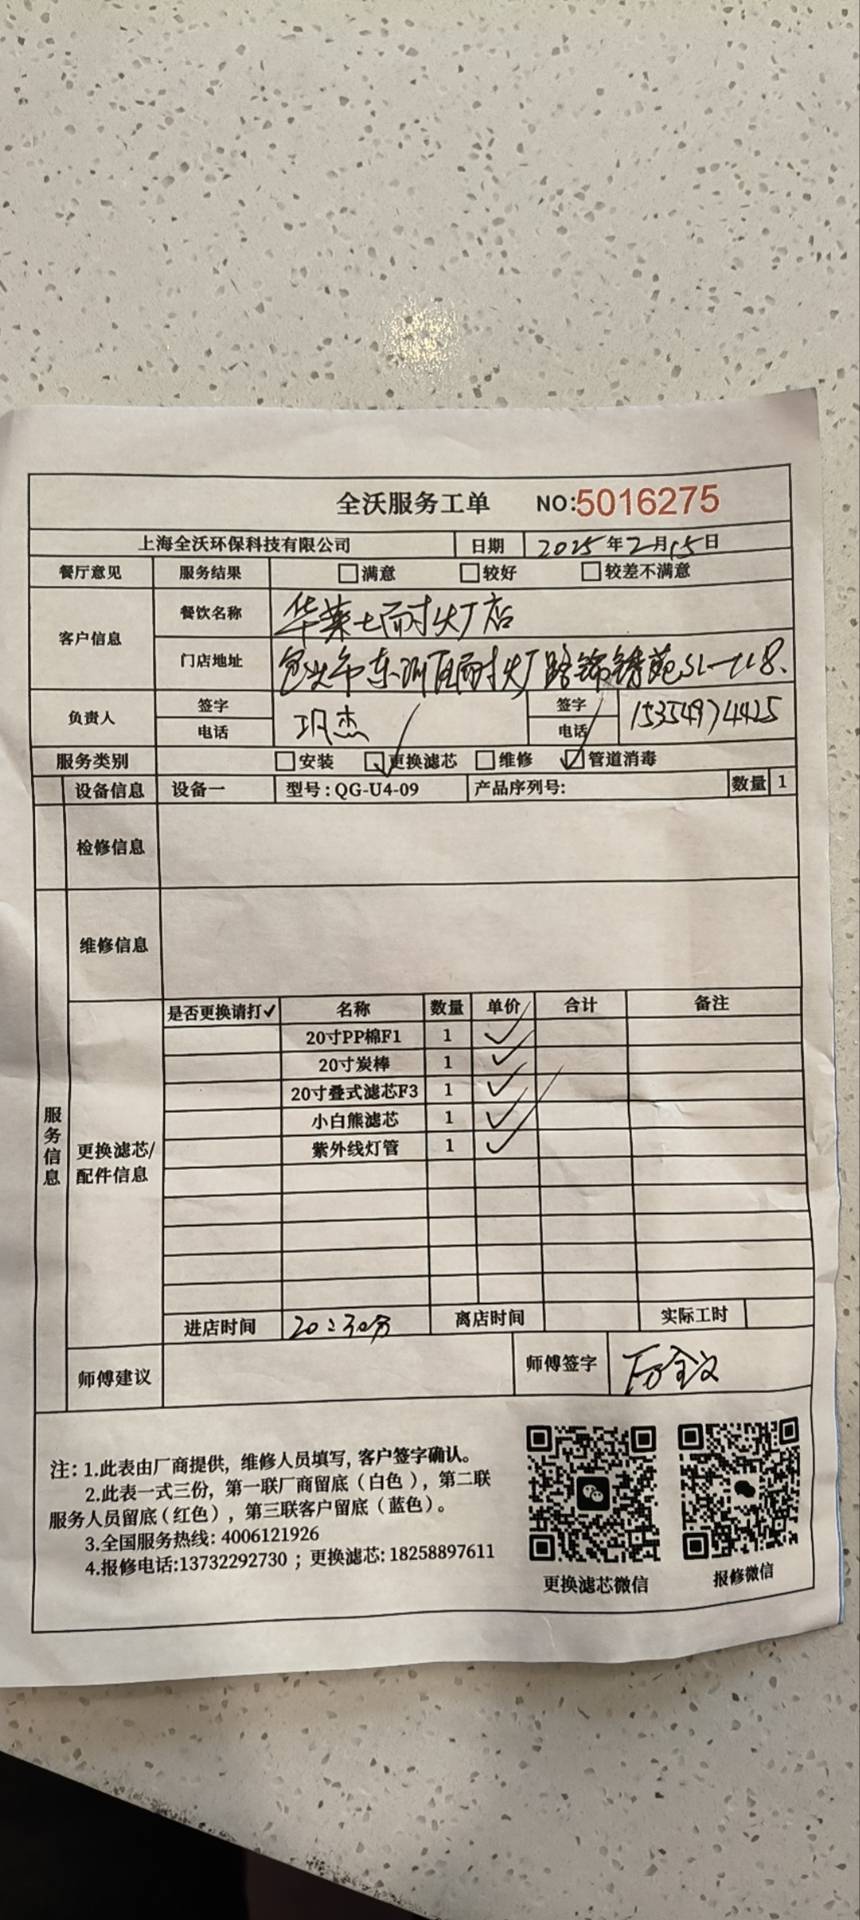 全沃服务工单 NO:5016275
上海全沃环保科技有限公司 日期 2025年2月15日
餐厅意见 服务结果 满意 较好 较差不满意
客户信息 餐饮名称 华莱士耐火厂店
门店地址 包头市东河区耐火厂路锦绣苑SL-118.
负责人 签字 杰 签字
电话 电话 15354974425
服务类别 安装 更换滤芯 维修 管道消毒
设备信息 设备一 型号:QG-U4-09 产品序列号: 数量 1
检修信息
维修信息
服务信息
更换滤芯/配件信息
是否更换请打✓ 名称 数量 单价 合计 备注
20寸PP棉F1 1 ✓
20寸炭棒 1 ✓
20寸叠式滤芯F3 1 ✓
小白熊滤芯 1 ✓
紫外线灯管 1 ✓
进店时间 20:30分 离店时间 实际工时
师傅建议 师傅签字
注: 1.此表由厂商提供, 维修人员填写, 客户签字确认。
2.此表一式三份, 第一联厂商留底(白色), 第二联
服务人员留底(红色), 第三联客户留底(蓝色)。
3.全国服务热线: 4006121926
4.报修电话:13732292730 ; 更换滤芯: 18258897611
更换滤芯微信 报修微信